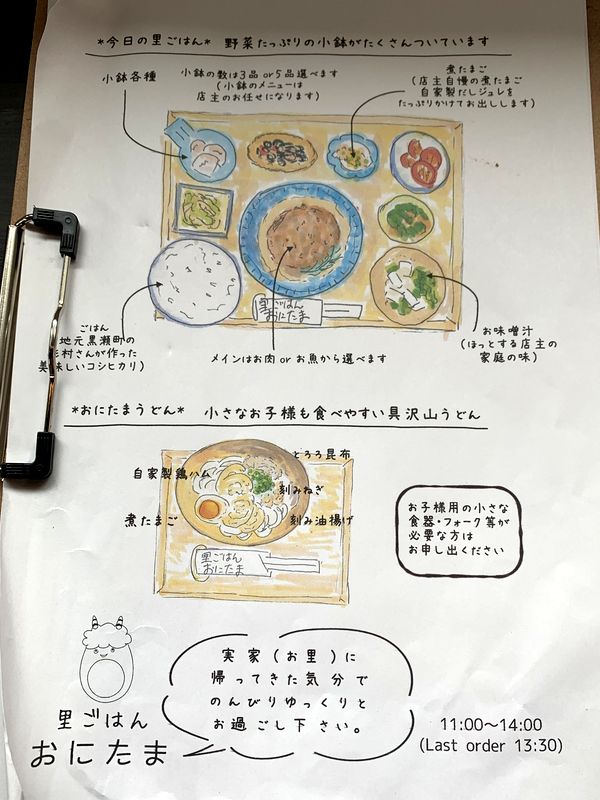 *今日の里ごはん* 野菜たっぷりの小鉢がたくさんついています
小鉢各種
小鉢の数は3品or5品選べます
(小鉢のメニューは
店主のお任せになります)
煮たまご
(店主自慢の煮たまご
自家製だしジュレを
たっぷりかけてお出しします)
里ごはん
おにたま
ごはん
地元黒瀬町の
村さんが作った
美味しいコシヒカリ)
メインはお肉 or お魚から選べます
お味噌汁
(ほっとする店主の
家庭の味)
*おにたまうどん* 小さなお子様も食べやすい具沢山うどん
とろろ昆布
自家製鶏ハム
刻みねぎ
煮たまご
刻み油揚げ
里ごはん
おにたま
お子様用の小さな
食器・フォーク等が
必要な方は
お申し出ください
実家(お里)に
帰ってきた気分で
のんびりゆっくりと
お過ごし下さい。
里ごはん
おにたま
11:00〜14:00
(Last order 13:30)